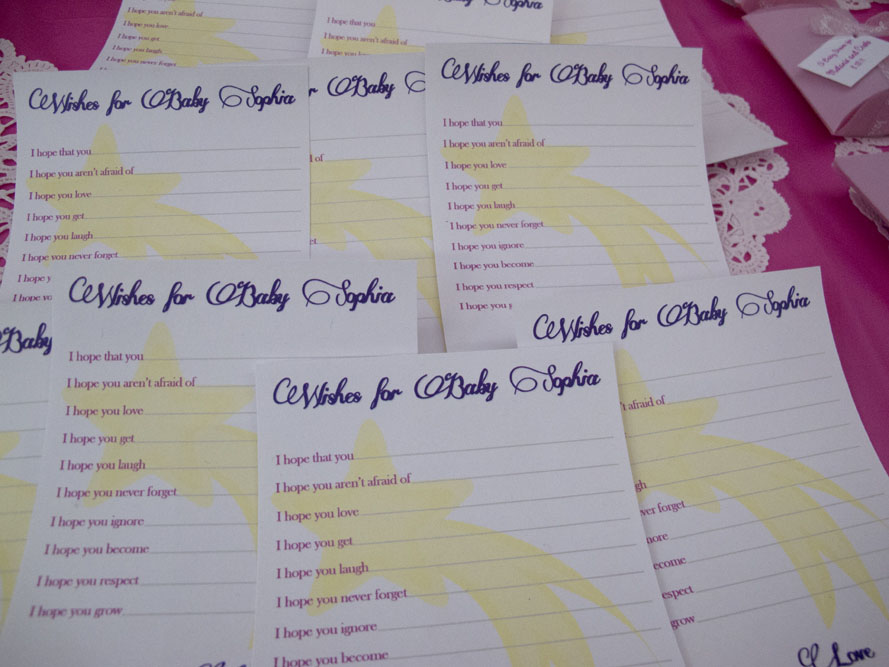 I hope you aren't afraid of
I hope you love
I hope you get
I hope you laugh
I hope you never forget
Sophia
I hope that you
I hope you aren't afraid of
I hope you love
Wishes for Baby Sophia
I hope that you
I hope you aren't afraid of
I hope you love
I hope you get
I hope you laugh
I hope you never forget
I hope y
I hope yo
r Baby
of
et
Wishes for Baby Sophia
I hope that you
I hope you aren't afraid of
I hope you love
I hope you get
I hope you laugh
I hope you never forget
I hope you ignore
I hope you become
I hope you respect
I hope you g
Baby
Wishes for Baby Sophia
I hope that you
I hope you aren't afraid of
I hope you love
I hope you get
I hope you laugh
I hope you never forget
I hope you ignore
I hope you become
I hope you respect
I hope you grow
Wishes for Baby Sophia
I hope that you
I hope you aren't afraid of
I hope you love
I hope you get
I hope you laugh
I hope you never forget
I hope you ignore
I hope you become
Wishes for Baby Sophia
't afraid of
gh
ver forget
nore
ecome
espect
grow
Love